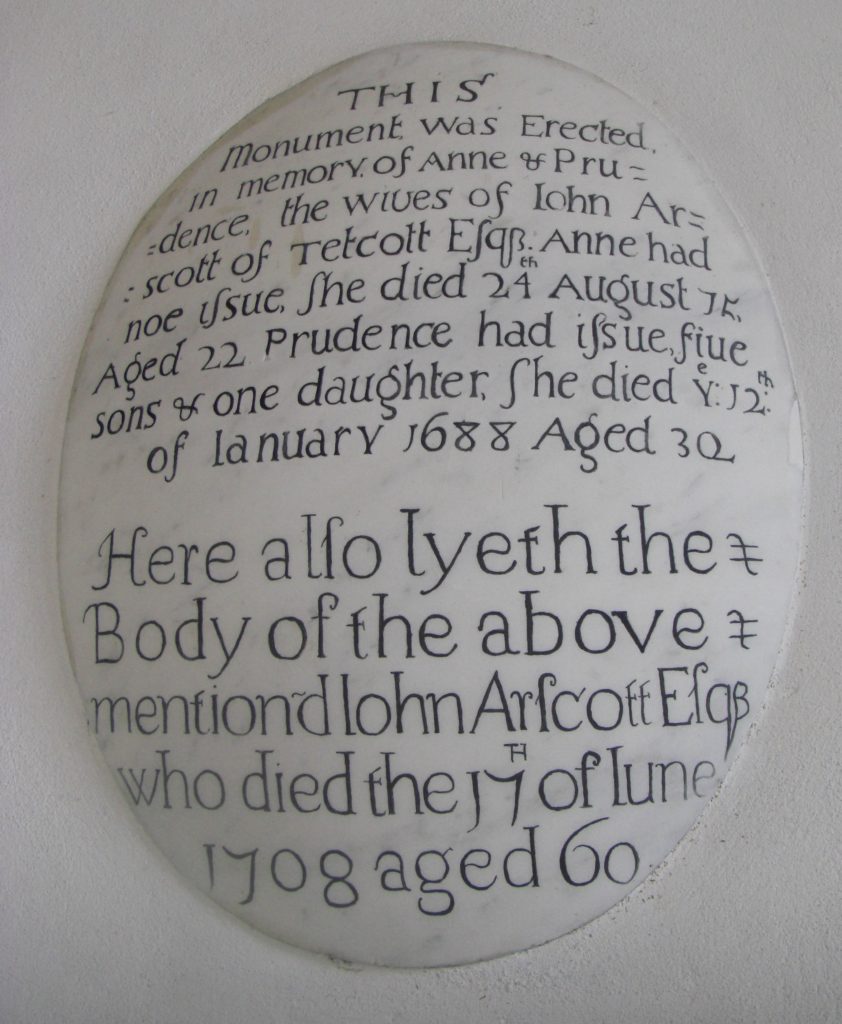 THIS
Monument was Erected
in memory of Anne & Pru=
=dence, the wiues of Iohn Ar=
:scott of Tetcott Eſqß: Anne had
noe iſsue, ſhe died 24th August 75,
Aged 22 Prudence had iſsue, fiue
sons & one daughter, ſhe died ye: 12th:
of Ianuary 1688 Aged 30
Here alſo lyeth the
Body of the above
mention͠d Iohn Arſcott Eſqß
who died the 17TH of Iune
1708 aged 60